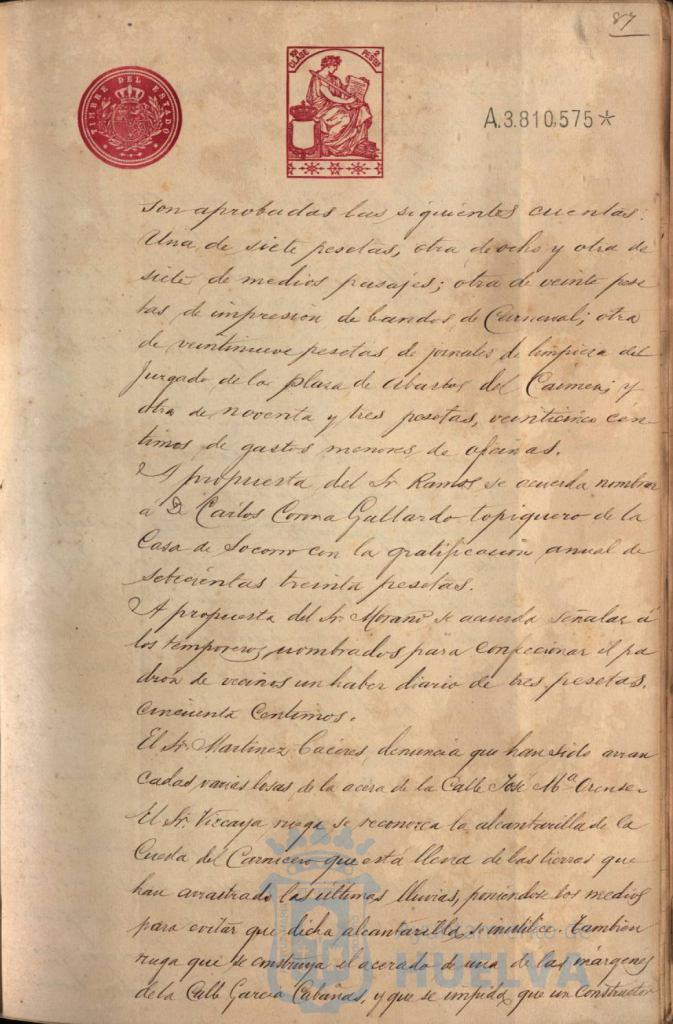 87
TIMBRE DEL ESTADO
10ª CLASE 2 PESETAS
A.3.810,575*
son aprobadas las siguientes cuentas:
Una de siete pesetas, otra de ocho y otra de
siete de medios pasajes; otra de veinte pese
tas de impresión de bandos de Carnaval; otra
de veintinueve pesetas de jornales de limpieza del
Juzgado de la plaza de abastos del Carmen; y
otra de noventa y tres pesetas, veinticinco cén-
timos de gastos menores de oficinas.
A propuesta del Sr. Ramos se acuerda nombrar
a D. Carlos Corona Gallardo topiquero de la
Casa de Socorro con la gratificación anual de
setecientas treinta pesetas.
A propuesta del Sr. Morano se acuerda señalar á
los temporeros, nombrados para confeccionar el pa
drón de vecinos un haber diario de tres pesetas,
cincuenta centimos.
El Sr. Martinez Caceres, denuncia que han sido arran
cadas, varias losas de la acera de la Calle José Mª Orense.
El Sr. Vizcaya ruega se reconozca la alcantarilla de la
Cuesta del Carnicero que está llena de las tierras que
han arrastrado las ultimas lluvias, poniendose los medios
para evitar que dicha alcantarilla se inutilice. Tambien
ruega que se construya el acerado de una de las márgenes
de la Calle Garcia Cabañas, y que se impida que un constructor
HUELVA